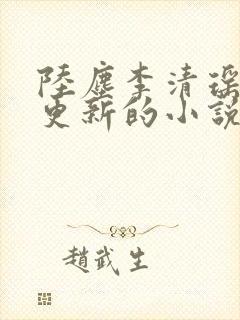 陸塵李清瑤
更新的小說
趙武生